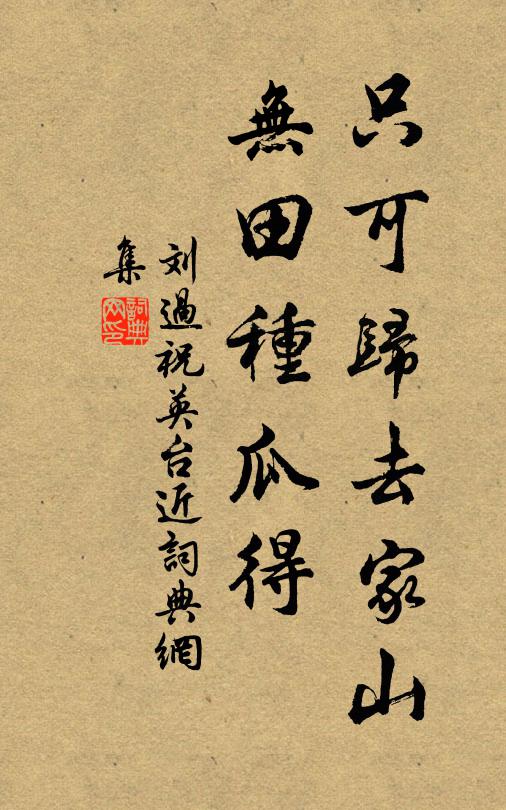 只可歸去家山
無田種瓜得
刘過祝英台近詞典網
集
詞典網印